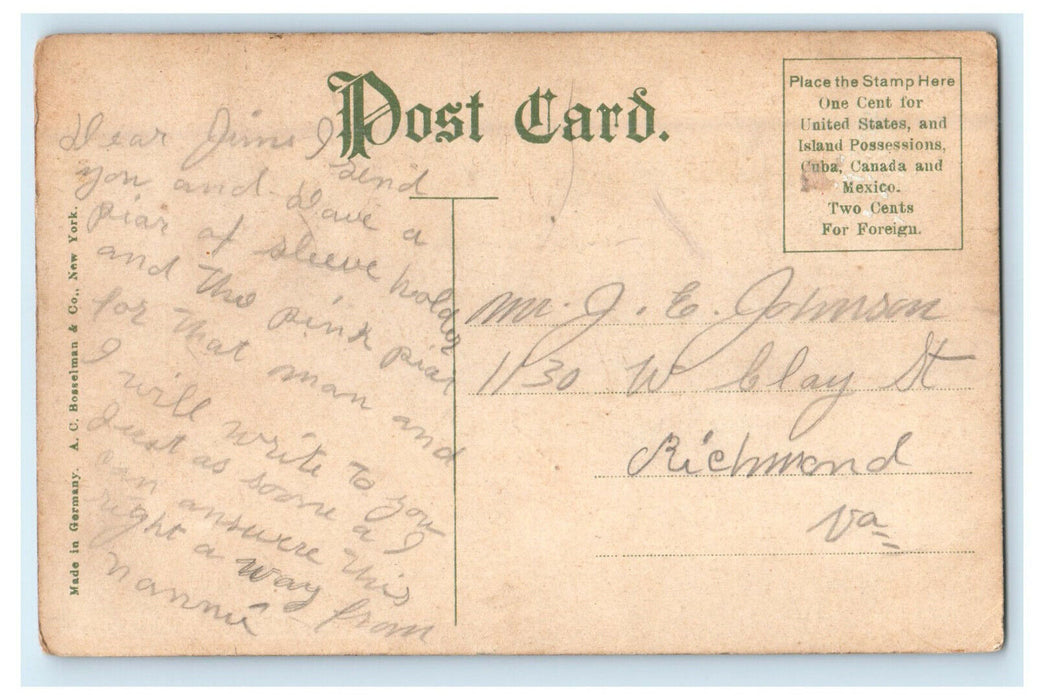 Post Card.
Place the Stamp Here
One Cent for
United States, and
Island Possessions,
Cuba, Canada and
Mexico.
Two Cents
For Foreign.
Dear Jims I send
you and Dave a
piar of sleeve holder
and the pink piar
for that man and
I will write to you
Just as soone a I
can answere this
right a way from
Nannie
Mr. J. E. Johnson
1130 W Clay St
Richmond
Va
Made in Germany. A. C. Bosselman & Co., New York.